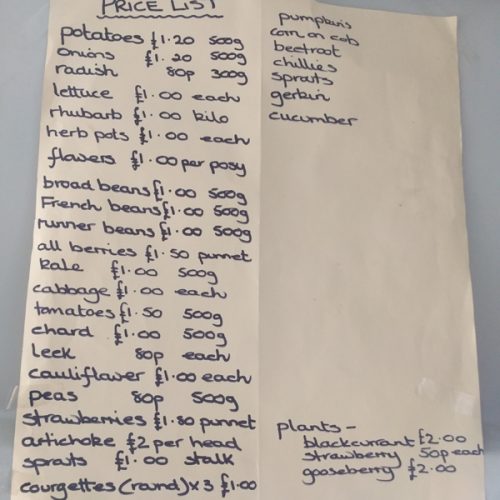 PRICE LIST
potatoes £1.20 500g
onions £1.20 500g
radish 80p 300g
lettuce £1.00 each
rhubarb £1.00 kilo
herb pots £1.00 each
flowers £1.00 per posy
broad beans £1.00 500g
French beans £1.00 500g
runner beans £1.00 500g
all berries £1.50 punnet
kale £1.00 500g
cabbage £1.00 each
tomatoes £1.50 500g
chard £1.00 500g
leek 80p each
cauliflower £1.00 each
peas 80p 500g
strawberries £1.80 punnet
artichoke £2 per head
sprouts £1.00 stalk
courgettes (round) x 3 £1.00
pumpkins
corn on cob
beetroot
chillies
sprouts
gerkin
cucumber
plants -
blackcurrant £2.00
strawberry 50p each
gooseberry £2.00